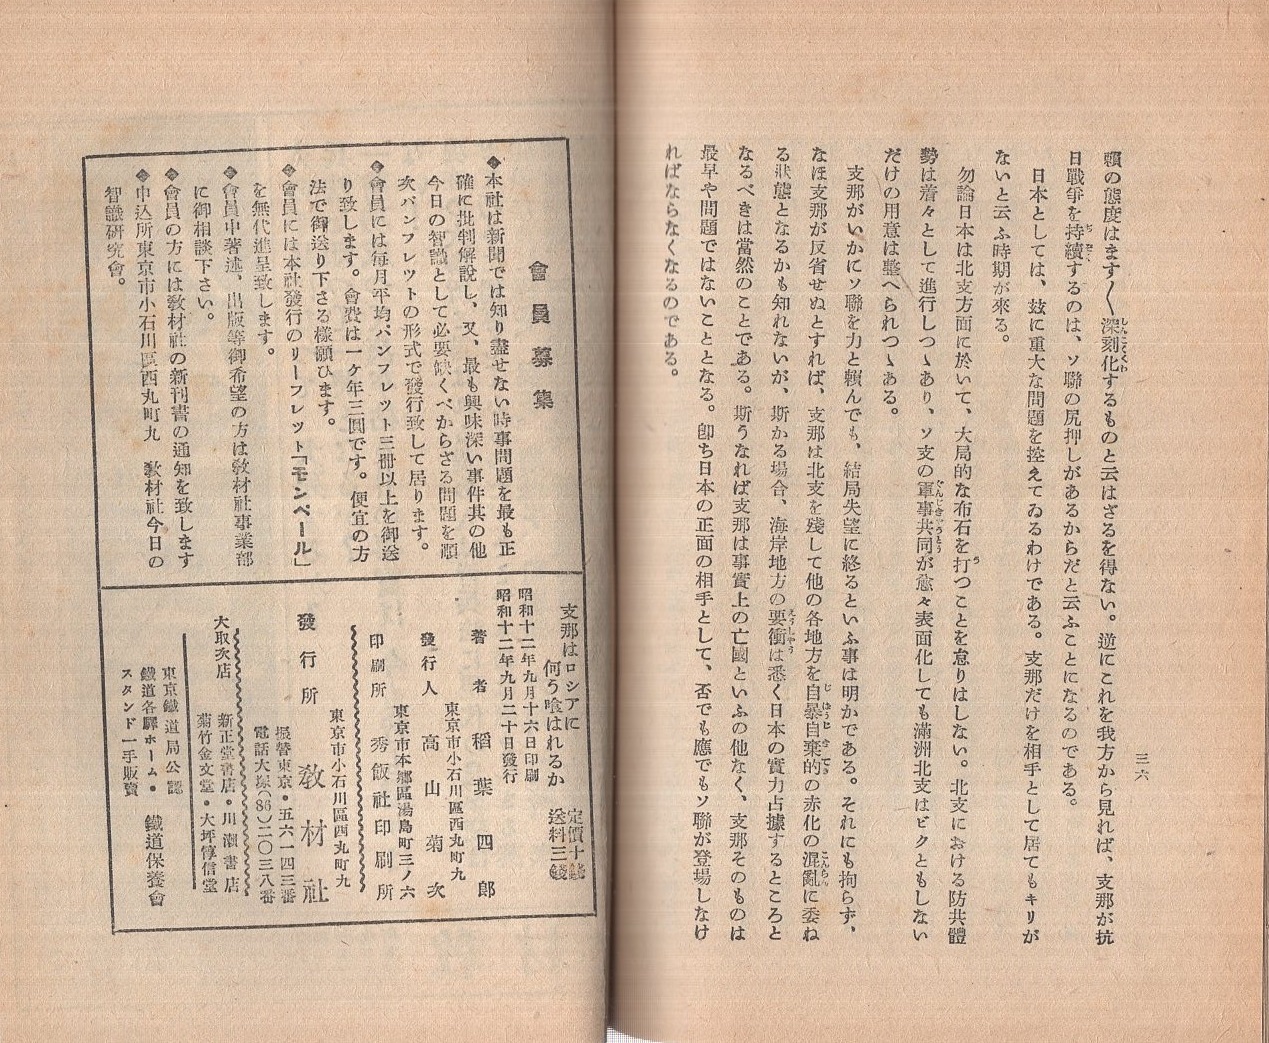 三六
賴の態度はます〱深刻化するものと云はざるを得ない。逆にこれを我方から見れば、支那が抗
日戰爭を持續するのは、ソ聯の尻押しがあるからだと云ふことになるのである。
日本としては、玆に重大な問題を控えてゐるわけである。支那だけを相手として居てもキリが
ないと云ふ時期が來る。
勿論日本は北支方面に於いて、大局的な布石を打つことを怠りはしない。北支における防共體
勢は着々として進行しつゝあり、ソ支の軍事共同が愈々表面化しても滿洲北支はビクともしない
だけの用意は整へられつゝある。
支那がいかにソ聯を力と賴んでも、結局失望に終るといふ事は明かである。それにも拘らず、
なほ支那が反省せぬとすれば、支那は北支を殘して他の各地方を自暴自棄的の赤化の混亂に委ね
る狀態となるかも知れないが、斯かる場合、海岸地方の要衝は悉く日本の實力占據するところと
なるべきは當然のことである。斯うなれば支那は事實上の亡國といふの他なく、支那そのものは
最早や問題ではないこととなる。卽ち日本の正面の相手として、否でも應でもソ聯が登場しなけ
ればならなくなるのである。
會員募集
◆本社は新聞では知り盡せない時事問題を最も正
確に批判解說し、又、最も興味深い事件其の他
今日の智識として必要缺くべからざる問題を順
次パンフレツトの形式で發行致して居ります。
◆會員には每月平均パンフレツト三冊以上を御送
り致します。會費は一ケ年三圓です。便宜の方
法で御送り下さる樣願ひます。
◆會員には本社發行のリーフレツト「モンペール」
を無代進呈致します。
◆會員中著述、出版等御希望の方は敎材社事業部
に御相談下さい。
◆會員の方には敎材社の新刊書の通知を致します
◆申込所東京市小石川區西丸町九　敎材社今日の
智識硏究會。
支那はロシアに
何う喰はれるか
定價十錢
送料三錢
昭和十二年九月十六日印刷
昭和十二年九月二十日發行
著者　稻葉四郎
東京市小石川區西丸町九
發行人　高山菊次
東京市本鄕區湯島町三ノ六
印刷所　秀飯社印刷所
東京市小石川區西丸町九
發行所　敎材社
振替東京・五六一四三番
電話大塚(86)二〇三八番
大取次店
新正堂書店・川瀨書店
菊竹金文堂・大坪惇信堂
東京鐵道局公認
鐵道各驛ホーム・
スタンド一手販賣
鐵道保養會